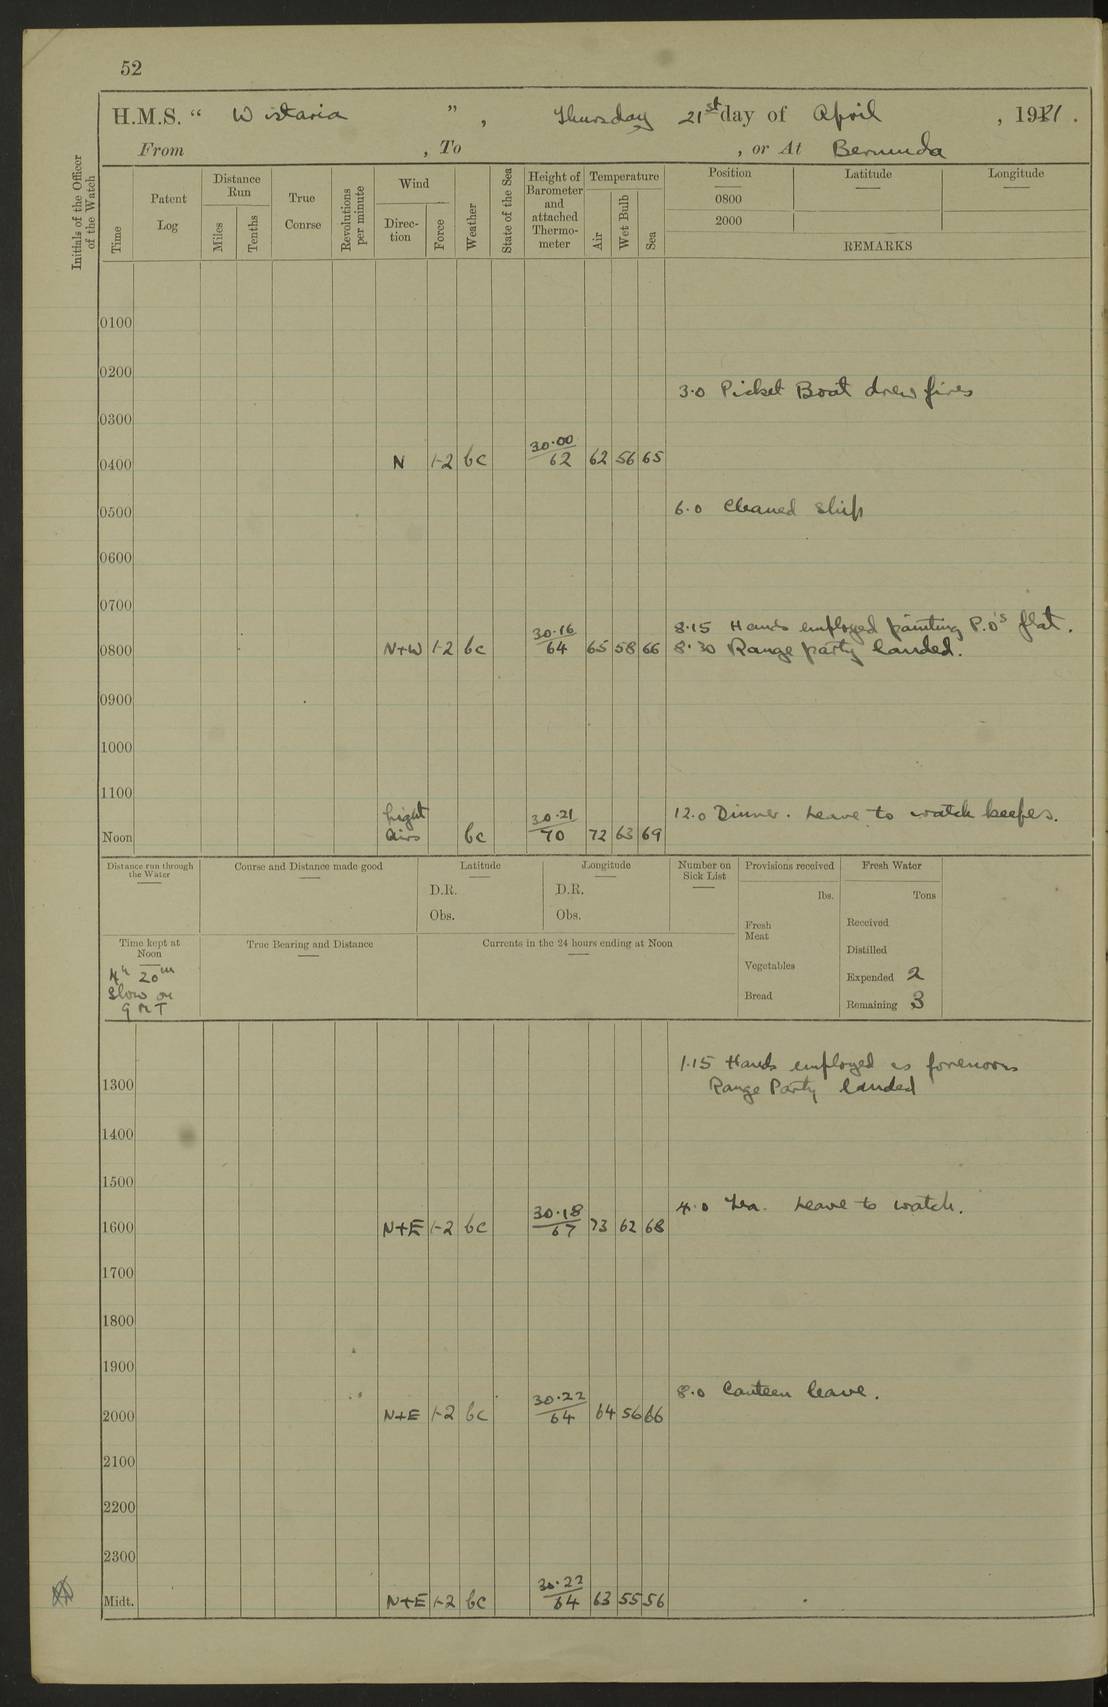 52
H.M.S. “ Wistaria ” , Thursday 21st day of April , 1921 .
From , To , or At Bermuda
Initials of the Officer of the Watch
Time
Patent Log
Distance Run
Miles
Tenths
True Conrse
Revolutions per minute
Wind
Direc- tion
Force
Weather
State of the Sea
Height of Barometer and attached Thermo- meter
Temperature
Air
Wet Bulb
Sea
Position Latitude Longitude
0800
2000
REMARKS
0100
0200
3.0 Picket Boat drew fires
0300
0400 N 1-2 bc 30.00/62 62 56 65
0500 6.0 Cleaned Ship
0600
0700
8.15 Hands employed painting P.O's flat.
0800 N+W 1-2 bc 30.16/64 65 58 66 8.30 Range party landed.
0900
1000
1100
12.0 Dinner. Leave to watch keepers.
Noon Light airs bc 30.21/70 72 63 69
Distance run through the Water
Course and Distance made good
Latitude
D.R.
Obs.
Longitude
D.R.
Obs.
Number on Sick List
Provisions received
lbs.
Fresh Meat
Vegetables
Bread
Fresh Water
Tons
Received
Distilled
Expended 2
Remaining 3
Time kept at Noon
4h 20m
Slow on
G M T
True Bearing and Distance
Currents in the 24 hours ending at Noon
1.15 Hands employed as forenoon
1300 Range Party landed
1400
1500
4.0 Tea. Leave to watch.
1600 N+E 1-2 bc 30.18/67 73 62 68
1700
1800
1900
8.0 Canteen leave.
2000 N+E 1-2 bc 30.22/64 64 56 66
2100
2200
2300
Midt. N+E 1-2 bc 30.22/64 63 55 56